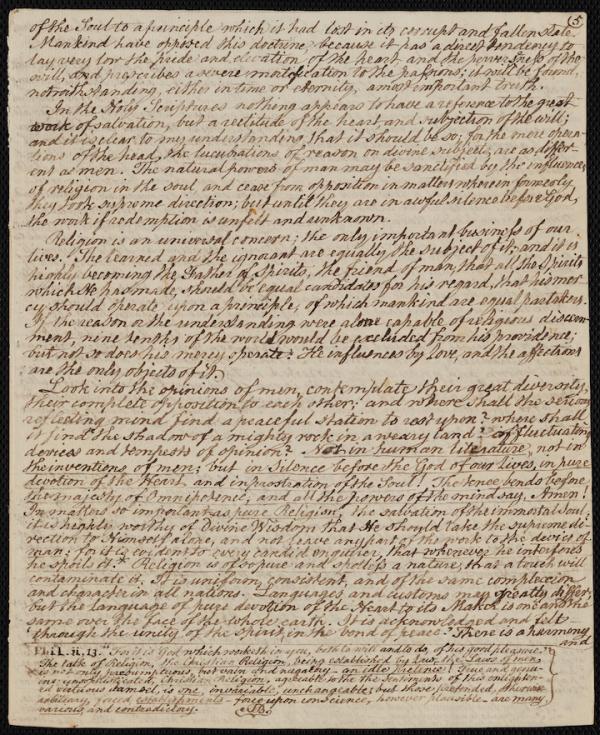 (5)
of the Soul to a principle which it had lost in its corrupt and fallen state.
Mankind have opposed this doctrine, because it has a direct tendency to
lay very low the pride and elevation of the heart and the perverseness of the
will, and prescribes a severe mortification to the passions; it will be found,
notwithstanding, either in time or eternity, a most important truth.
In the Holy Scriptures nothing appears to have a reference to the great
work of salvation, but a rectitude of the heart and subjection of the will;
and it is clear to my understanding that it should be so; for the mere opera-
tions of the head, the lucubrations of reason on divine subjects, are as differ-
ent as men. The natural powers of man may be sanctified by the influence
of religion in the soul and cease from opposition in matters wherein formerly
they took supreme direction; but until they are in awful silence before God,
the work of redemption is unfelt and unknown.
Religion is an universal concern; the only important business of our
lives. The learned and the ignorant are equally the subject of it; and it is
highly becoming the Father of Spirits, the friend of man, that all the Spirits
which He has made, should be equal candidates for his regard, that his mer-
cy should operate upon a principle, of which mankind are equal partakers.
If the reason or the understanding were alone capable of religious discern-
ment, nine tenths of the world would be excluded from his providence;
but not so does his mercy operate: He influences by Love, and the affections
are the only objects of it.
Look into the opinions of men, contemplate their great diversity,
their complete opposition to each other: and where shall the serious
reflecting mind find a peaceful station to rest upon? where shall
it find the shadow of a mighty rock in a weary land of fluctuating
devices and tempests of opinion? Not in human literature, not in
the inventions of men; but in Silence before the God of our lives, in pure
devotion of the Heart, and in prostration of the Soul! The knee bends before
the majesty of Omnipotence, and all the powers of the mind say, Amen!
In matters so important as pure Religion, the salvation of the immortal soul,
it is highly worthy of Divine Wisdom that He should take the supreme di-
rection to Himself alone, and not leave any part of the work to the devices of
man: for it is evident to every candid enquirer, that whenever he interferes
he spoils it.* Religion is of so pure and spotless a nature, that a touch will
contaminate it. It is uniform, consistent, and of the same complexion
and character in all nations. Languages and customs may greatly differ,
but the language of pure devotion of the Heart to its Maker is one and the
same over the face of the whole earth. It is acknowledged and felt
through the unity of the spirit, in the bond of peace. There is a harmony
and
Phil. ii. 13. For it is God which worketh in you, both to will and to do, of his good pleasure.
The talk of Religion, the Christian Religion, being established by Law, the Laws of men,
is not only presumptuous, but vain and nugatory - an idle pretence! True and genu-
ine Christian Religion, agreeable to the Sentiments of this enlighten-
ed virtuous damsel, is one, invariable, unchangeable; but those pretended,
arbitrary, forced, establishments - force upon conscience, however plausible - are many,
various and contradictory.